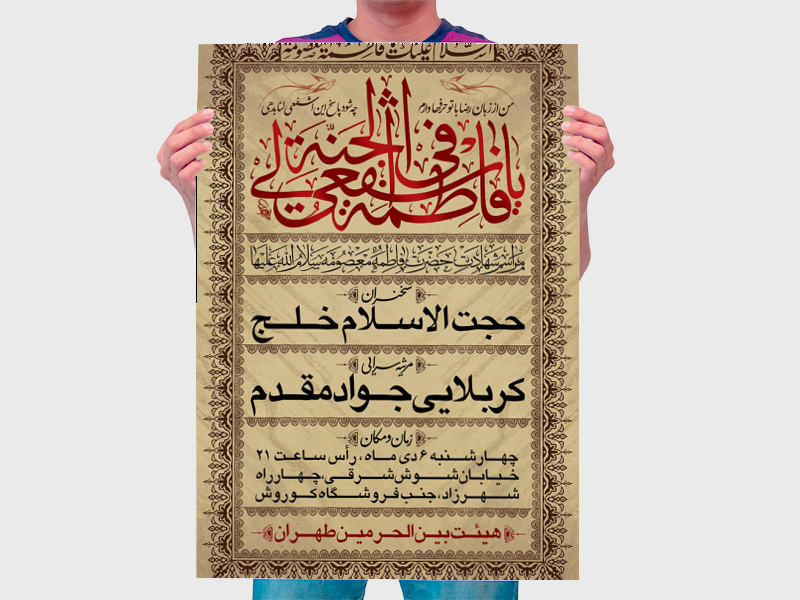 السلام علیک یا فاطمة معصومة
من از زبان رضا با تو حرفها دارم
چه شود پاسخ این اشفعی لنا بدهی
یا فاطمة اشفعی لی فی الجنة
مراسم شهادت حضرت فاطمه معصومه سلام الله علیها
سخنران
حجت الاسلام خلج
مرثیه سرایی
کربلایی جواد مقدم
زمان و مکان
چهارشنبه ۶ دی ماه، رأس ساعت ۲۱
خیابان شوش شرقی، چهارراه
شهرزاد، جنب فروشگاه کوروش
هیئت بین الحرمین طهران